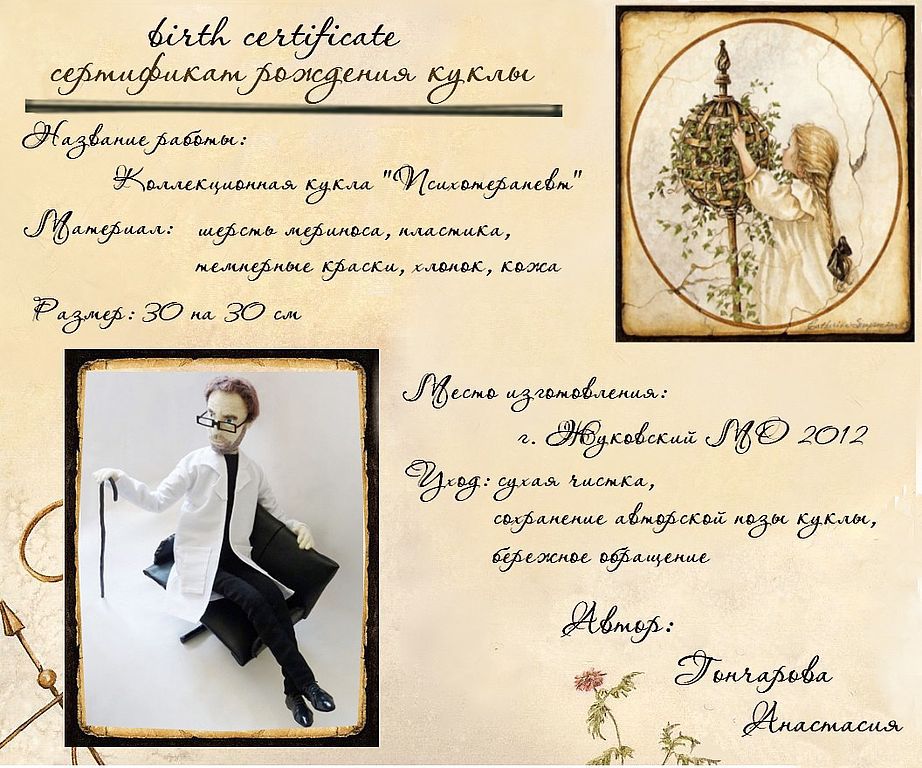 birth certificate
сертификат рождения куклы
Название работы:
Коллекционная кукла "Психотерапевт"
Материал: шерсть мериноса, пластика,
темперные краски, хлопок, кожа
Размер: 30 на 30 см
Место изготовления:
г. Жуковский МО 2012
Уход: сухая чистка,
сохранение авторской позы куклы,
бережное обращение
Автор:
Гончарова
Анастасия